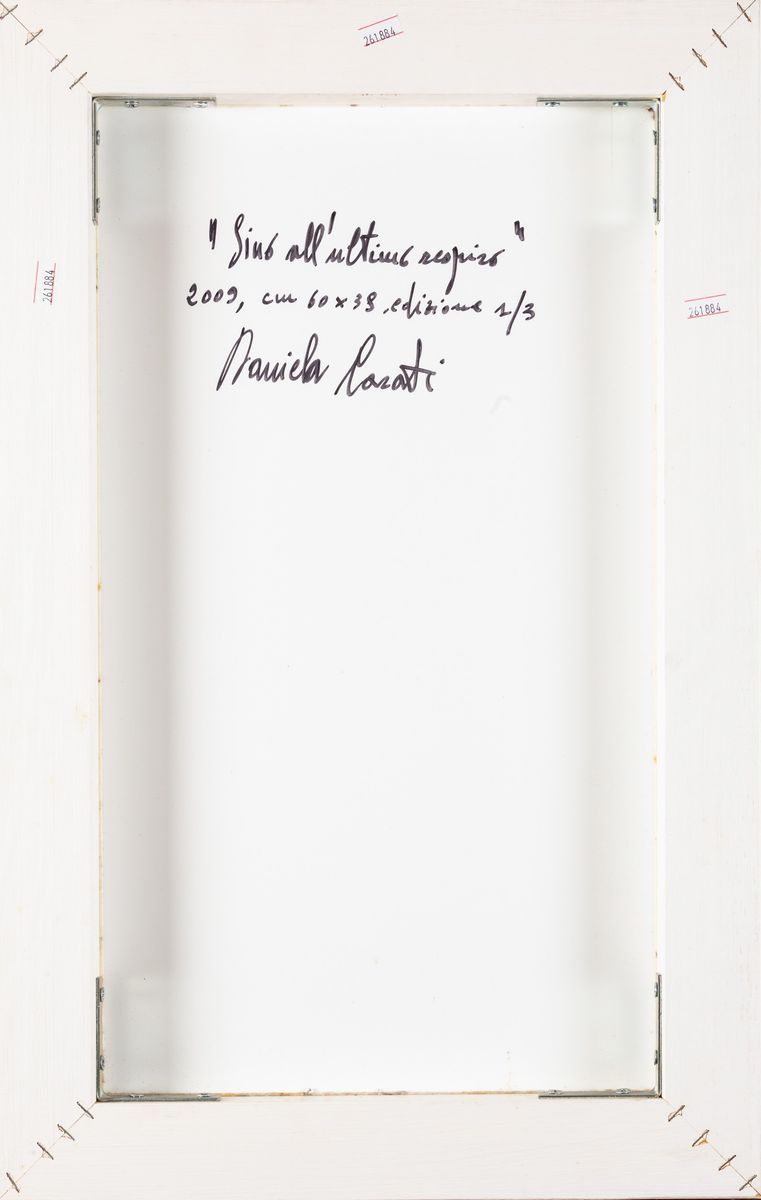 261884
"Sino all'ultimo respiro"
261884
2009, cm 60x38, edizione 1/3
261884
Daniela Carati